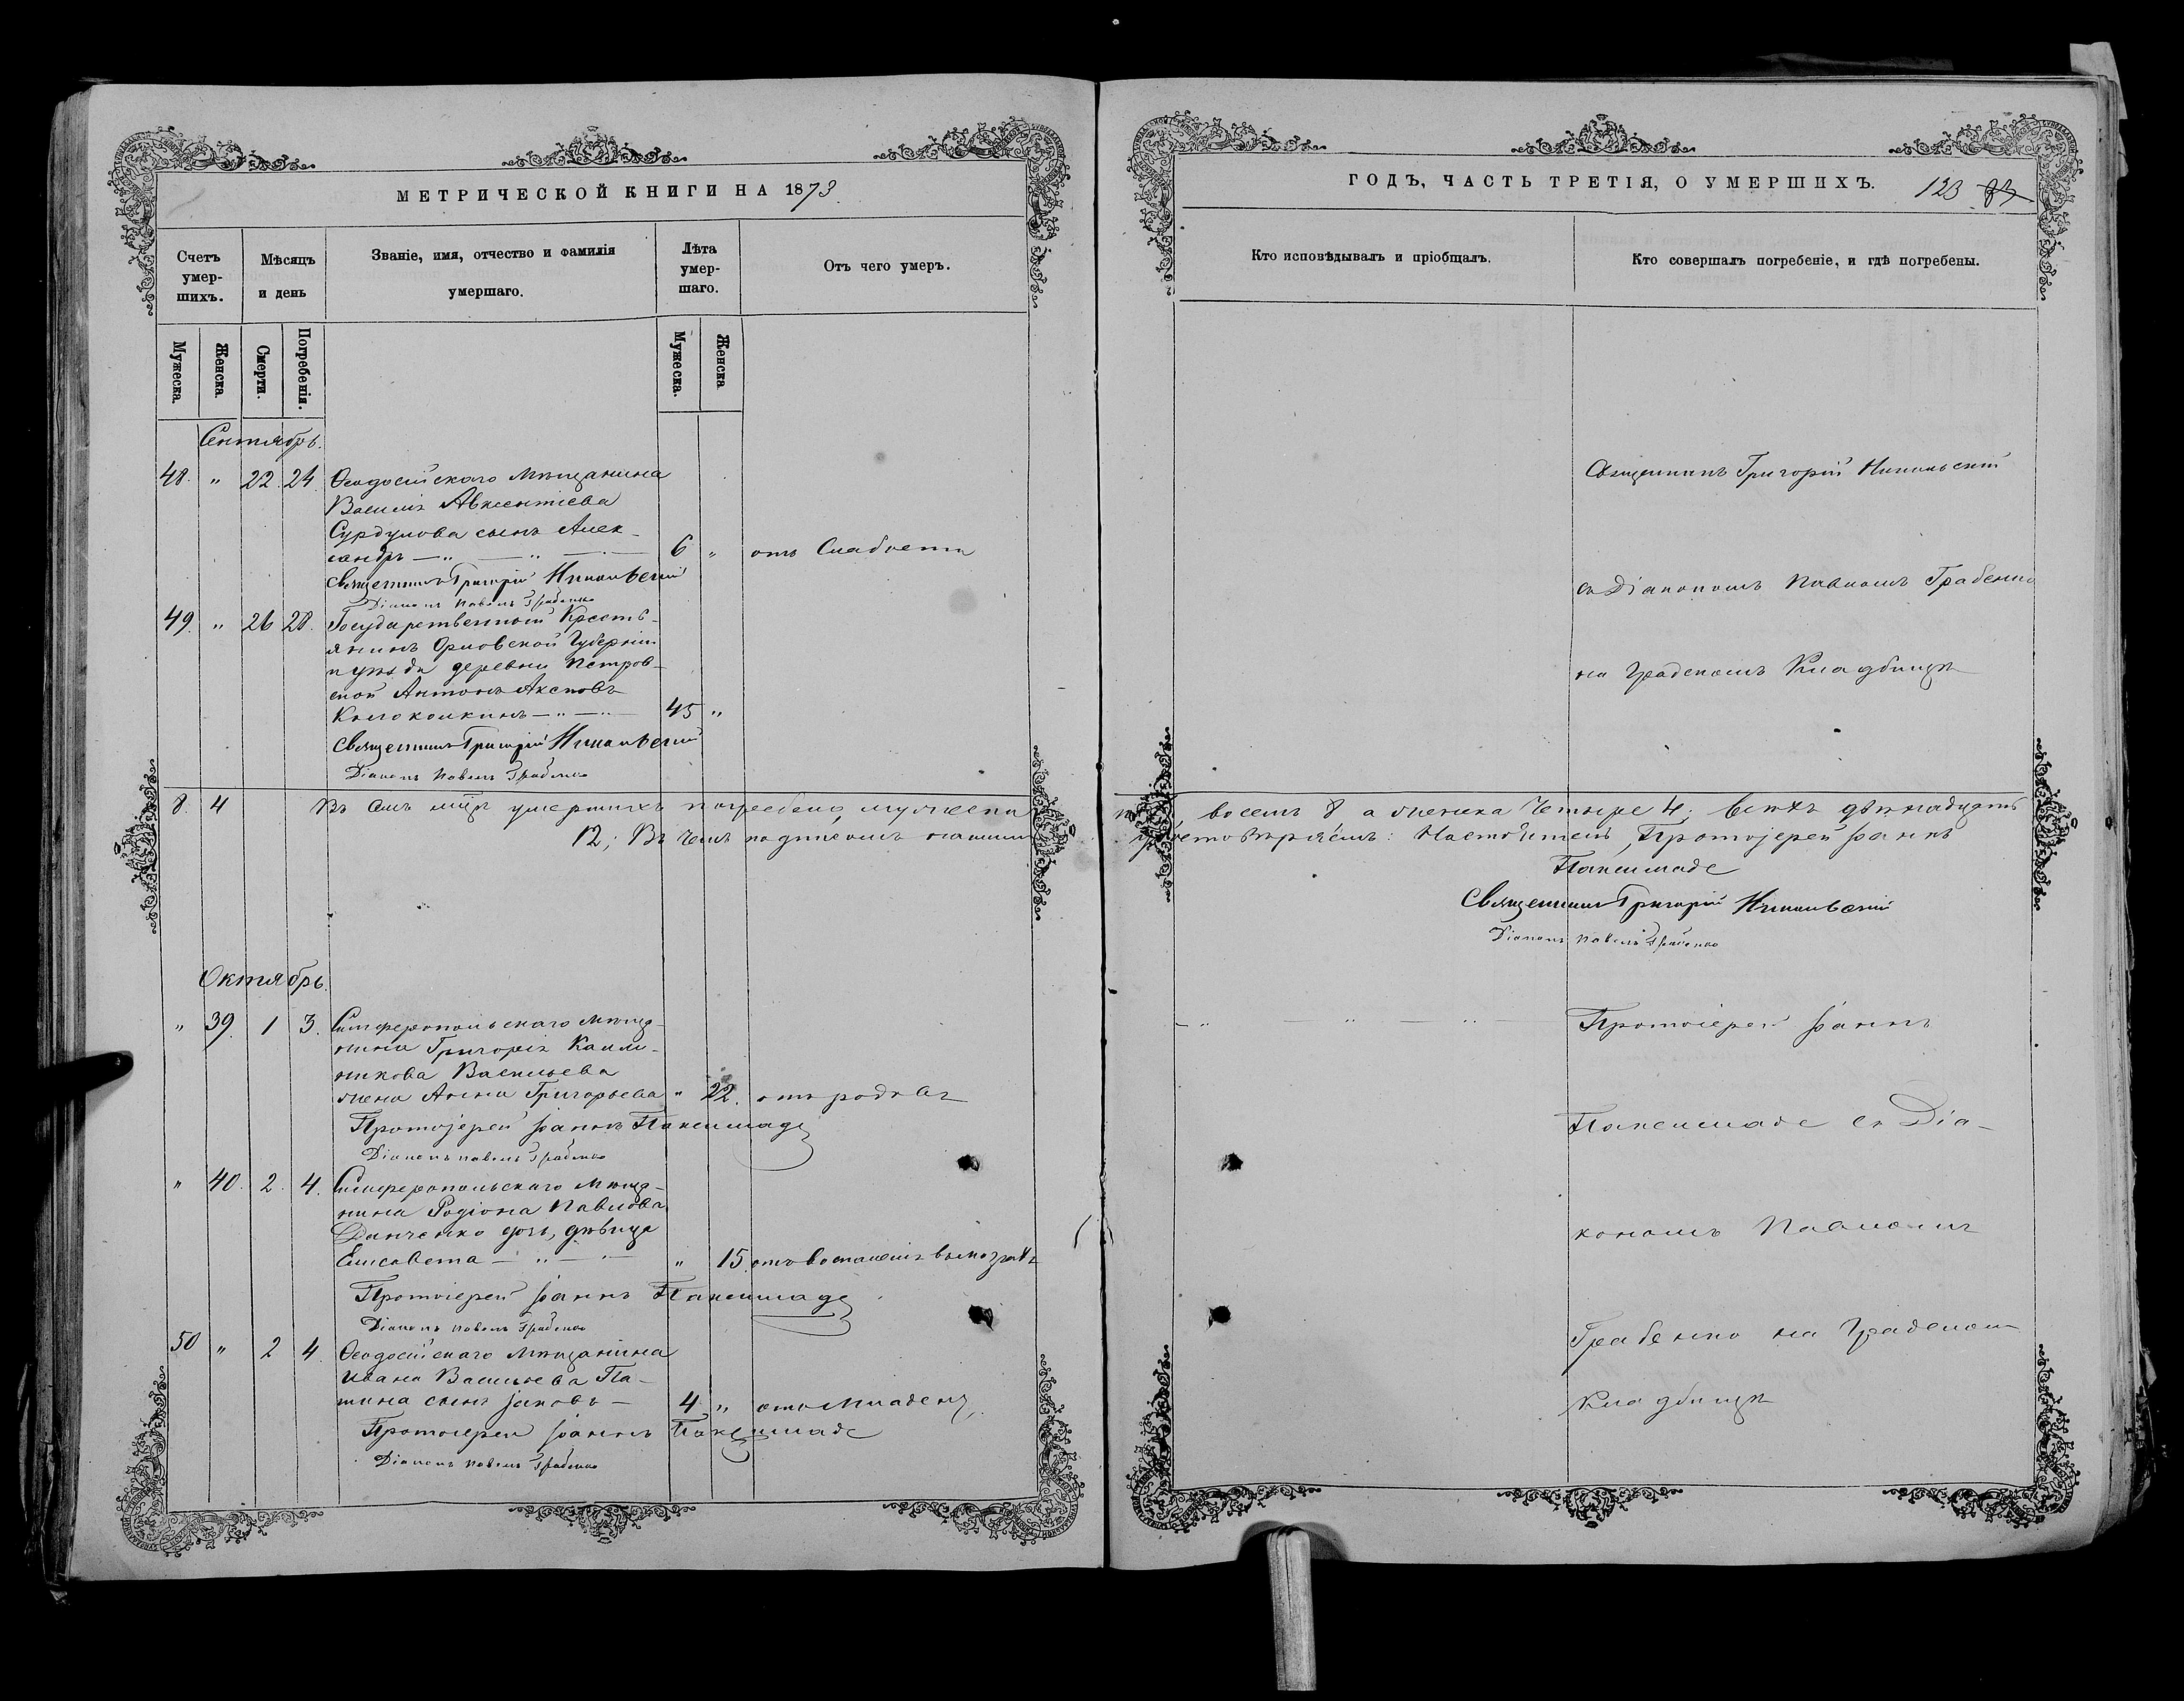 МЕТРИЧЕСКОЙ КНИГИ НА 1873.
Счетъ умер-шихъ.
Мѣсяцъ и день
Званіе, имя, отчество и фамилія умершаго.
Лѣта умер-шаго.
Отъ чего умеръ.
Мужеска.
Женска.
Смерти.
Погребенія.
Мужеска.
Женска
Сентябрь.
48. " 22. 24. Ѳеодосійскаго Мѣщанина
Василія Авксентіева
сынъ Алек-
сандръ — " — " — 6 " отъ Слабости
Священникъ Григорій Никольскій
Діаконъ Павелъ Грабенко
49. " 26 28. Государственный Кресть-
янинъ Орловской Губерніи
деревни Петров-
ской Антонъ
Колоколкинъ — " — " 45 "
Священникъ Григорій Никольскій
Діаконъ Павелъ Грабенко
8. 4 Въ семъ мцѣ умершихъ погребено, мужеска
12; Въ чемъ подписомъ нашимъ
Октябрь.
" 39. 1 3. Симферопольскаго Мѣща-
нина Григорія
Васильева
жена Анна Григорьева " 22. отъ родовъ
Протоіерей Іоаннъ Паксимаде
Діаконъ Павелъ Грабенко
" 40. 2. 4. Симферопольскаго Мѣща-
нина Родіона Павлова
Данченко дочь, дѣвица
Елисавета — " — " 15. отъ воспаленія въ мозгахъ
Протоіерей Іоаннъ Паксимаде
Діаконъ Павелъ Грабенко
50 " 2 4. Ѳеодосійскаго Мѣщанина
Ивана Васильева Па-
тина сынъ Іаковъ — 4 " отъ Младенч.
Протоіерей Іоаннъ Паксимаде
Діаконъ Павелъ Грабенко
ГОДЪ, ЧАСТЬ ТРЕТІЯ, О УМЕРШИХЪ. 123
Кто исповѣдывалъ и пріобщалъ.
Кто совершалъ погребеніе, и гдѣ погребены.
Священникъ Григорій Никольскій
съ Діакономъ Павломъ Грабенко
на Градскомъ Кладбищѣ
восемь 8 а женска Четыре 4; всѣхъ двѣнадцать
Настоятель, Протоіерей Іоаннъ
Паксимаде
Священникъ Григорій Никольскій
Діаконъ Павелъ Грабенко
— " — " — " — Протоіерей Іоаннъ
Паксимаде съ Діа-
кономъ Павломъ
Грабенко на Градском
Кладбищѣ